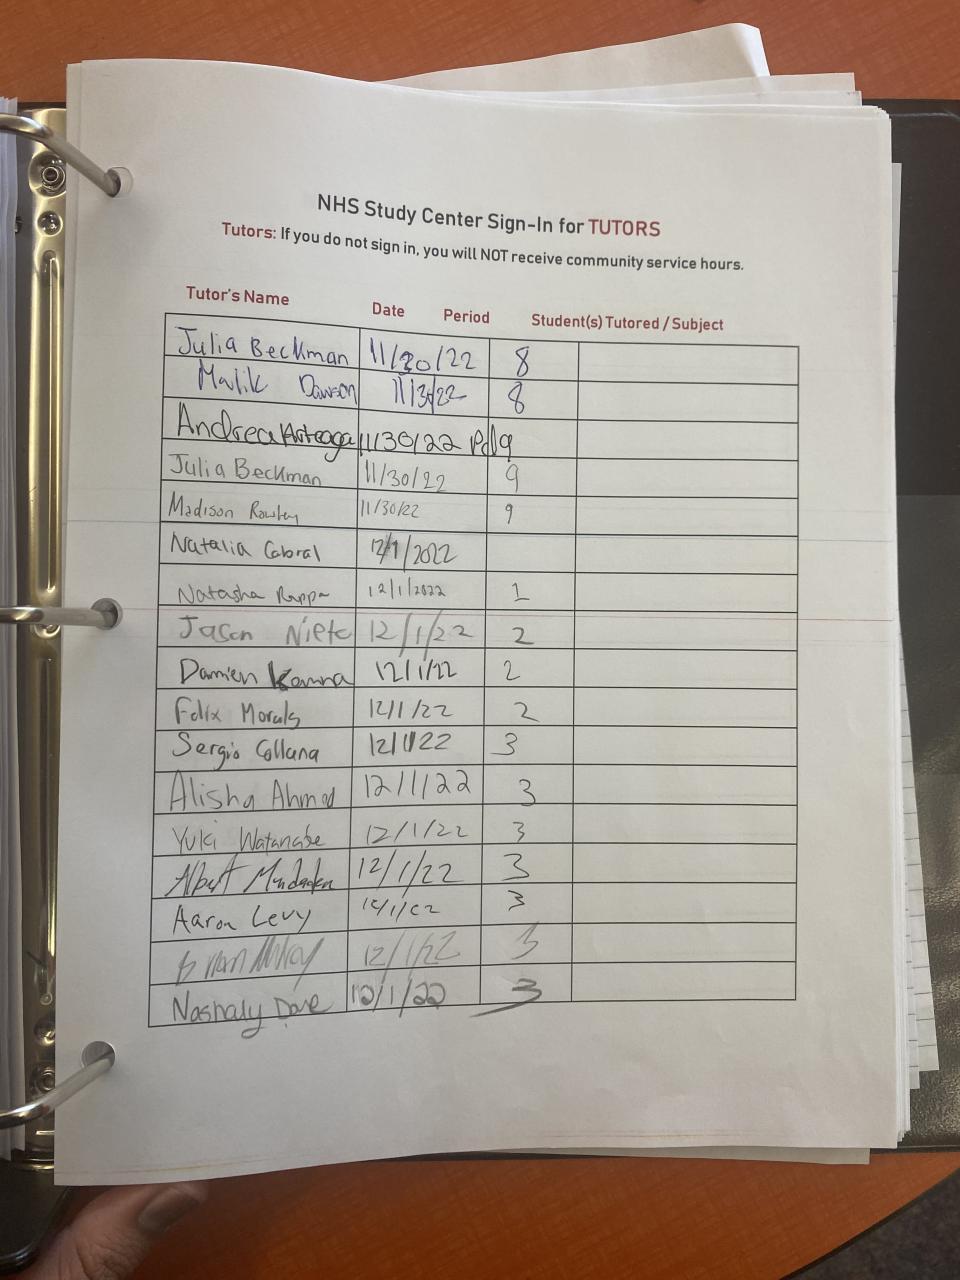 NHS Study Center Sign-In for TUTORS
Tutors: If you do not sign in, you will NOT receive community service hours.
Tutor's Name Date Period Student(s) Tutored / Subject
Julia Beckman 11/30/22 8
Malik Dawson 11/30/22 8
Andrea Arteaga 11/30/22 Pd 9
Julia Beckman 11/30/22 9
Madison Rowley 11/30/22 9
Natalia Cabral 12/1/2022
Natasha 12/1/2022 1
Jason Nieto 12/1/22 2
Damien 12/1/22 2
Felix Morals 12/1/22 2
Sergio Collana 12/1/22 3
Alisha Ahmed 12/1/22 3
Yuki Watanabe 12/1/22 3
Albert 12/1/22 3
Aaron Levy 3
12/1/22 3
Nashaly Dave 12/1/22 3